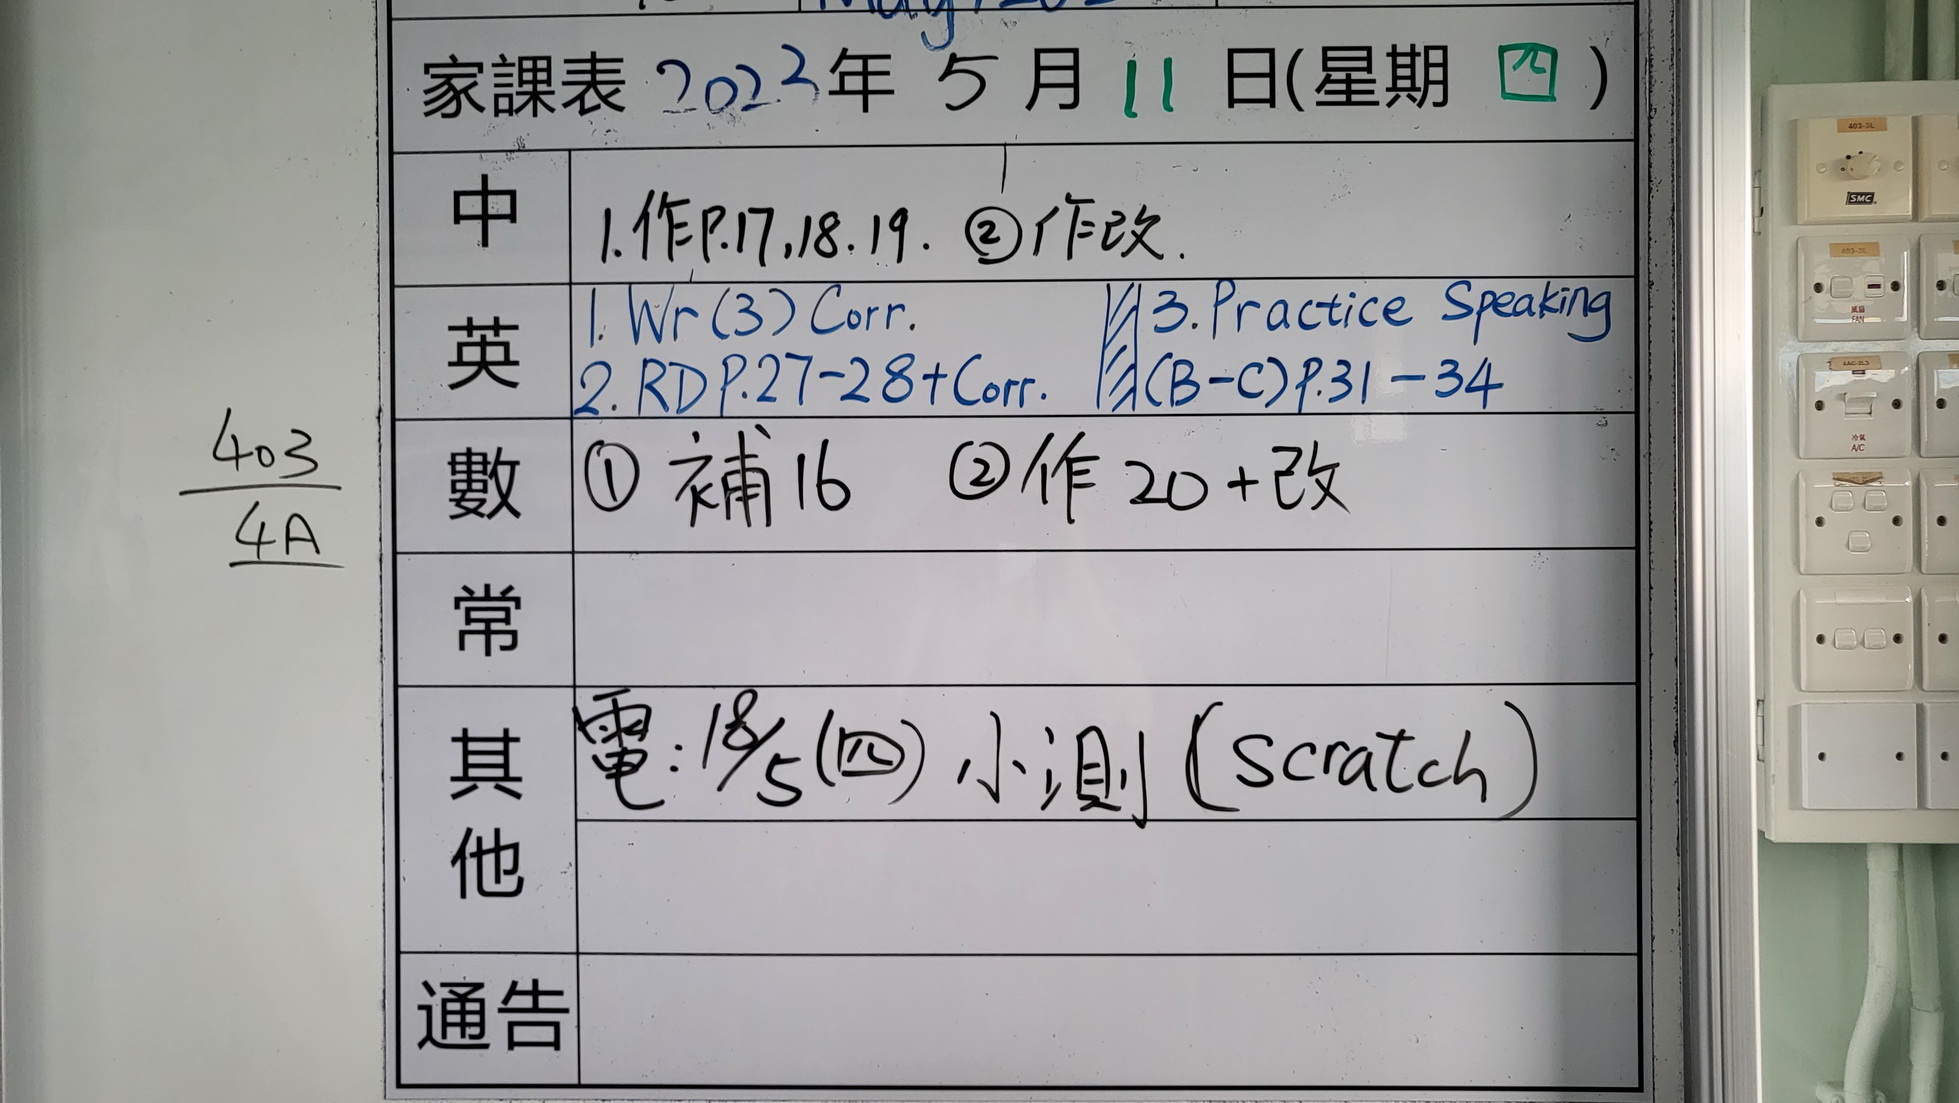 家課表 2023年 5月 11日(星期 四)
中
1.作P.17,18.19. ②作改.
英
1. Wr(3) Corr.
2. RD P.27-28+Corr.
3. Practice Speaking
(B-C) P.31-34
數
① 補16 ②作20+改
403
4A
常
其他
電:18/5(四) 小測(Scratch)
通告
403-3L
SMC
403-3L
風扇
FAN
冷氣
A/C